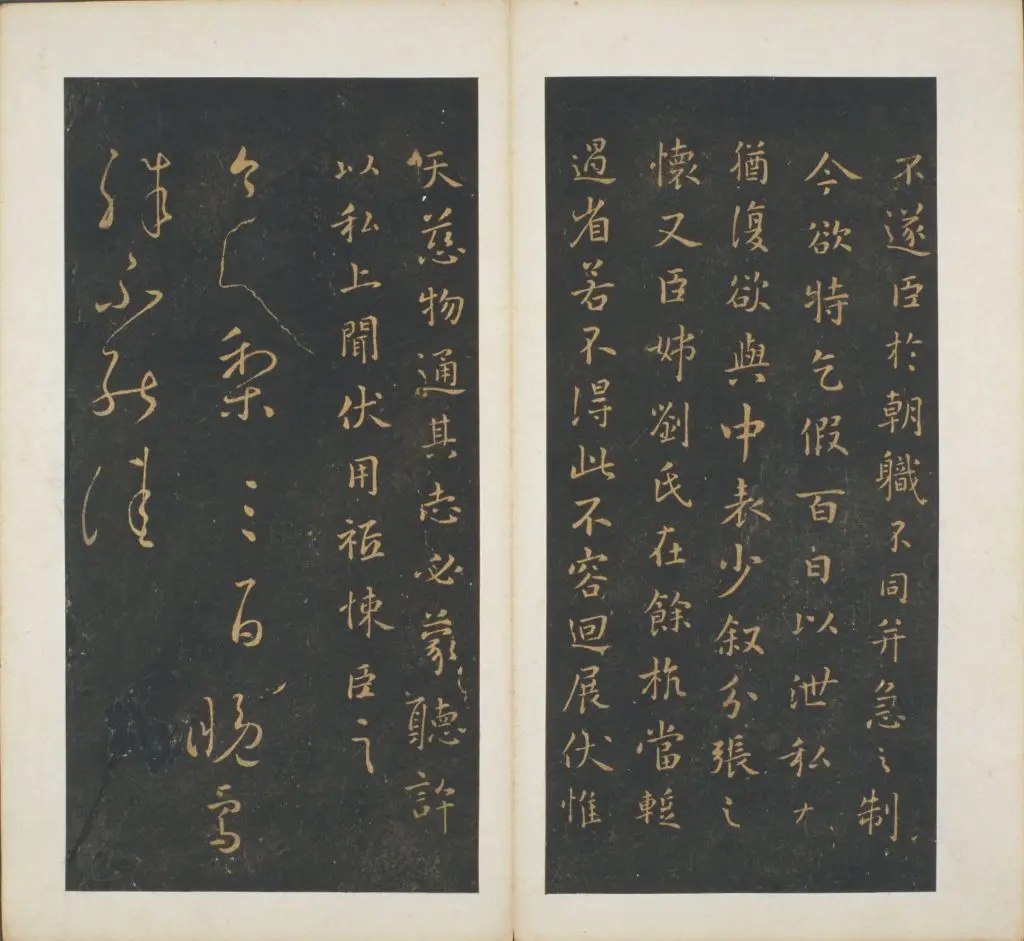 不遂臣於朝職不同并急之制
今欲特乞假百日以泄私
猶復欲與中表少叙分張之
懷又臣姊劉氏在餘杭當蹔
過省若不得此不容迴展伏惟
天慈物通其志必蒙聽許
以私上聞伏用祗悚臣之
今送梨三百晚雪
殊不能佳